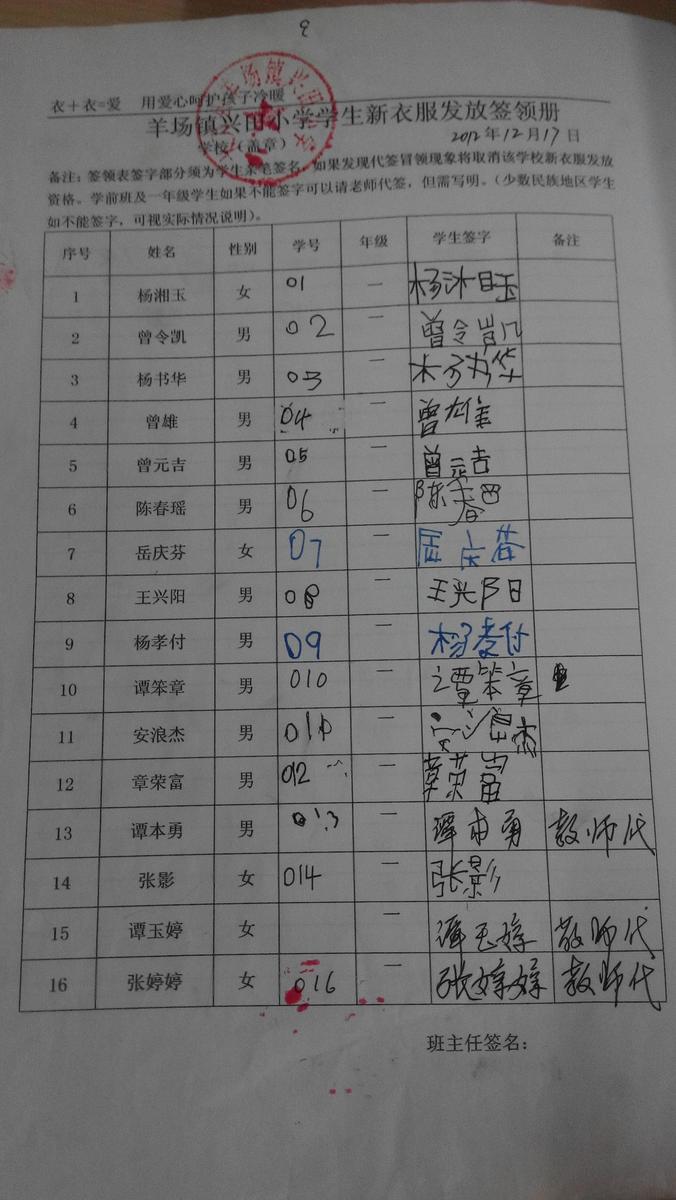 9
衣+衣=爱 用爱心呵护孩子冷暖
羊场镇兴田小学学生新衣服发放签领册
学校（盖章） 2012年12月17日
备注：签领表签字部分须为学生亲笔签名，如果发现代签冒领现象将取消该学校新衣服发放
资格。学前班及一年级学生如果不能签字可以请老师代签，但需写明。（少数民族地区学生
如不能签字，可视实际情况说明）。
序号 姓名 性别 学号 年级 学生签字 备注
1 杨湘玉 女 01 一 杨湘玉
2 曾令凯 男 02 一 曾令凯
3 杨书华 男 03 一 杨书华
4 曾雄 男 04 一 曾雄
5 曾元吉 男 05 一 曾元吉
6 陈春瑶 男 06 一 陈春
7 岳庆芬 女 07 一 岳庆芬
8 王兴阳 男 08 一 王兴阳
9 杨孝付 男 09 一 杨孝付
10 谭笨章 男 010 一 谭笨章
11 安浪杰 男 011 一 安浪杰
12 章荣富 男 012 一 章荣富
13 谭本勇 男 013 一 谭本勇 教师代
14 张影 女 014 一 张影
15 谭玉婷 女 一 谭玉婷 教师代
16 张婷婷 女 016 一 张婷婷 教师代
班主任签名：